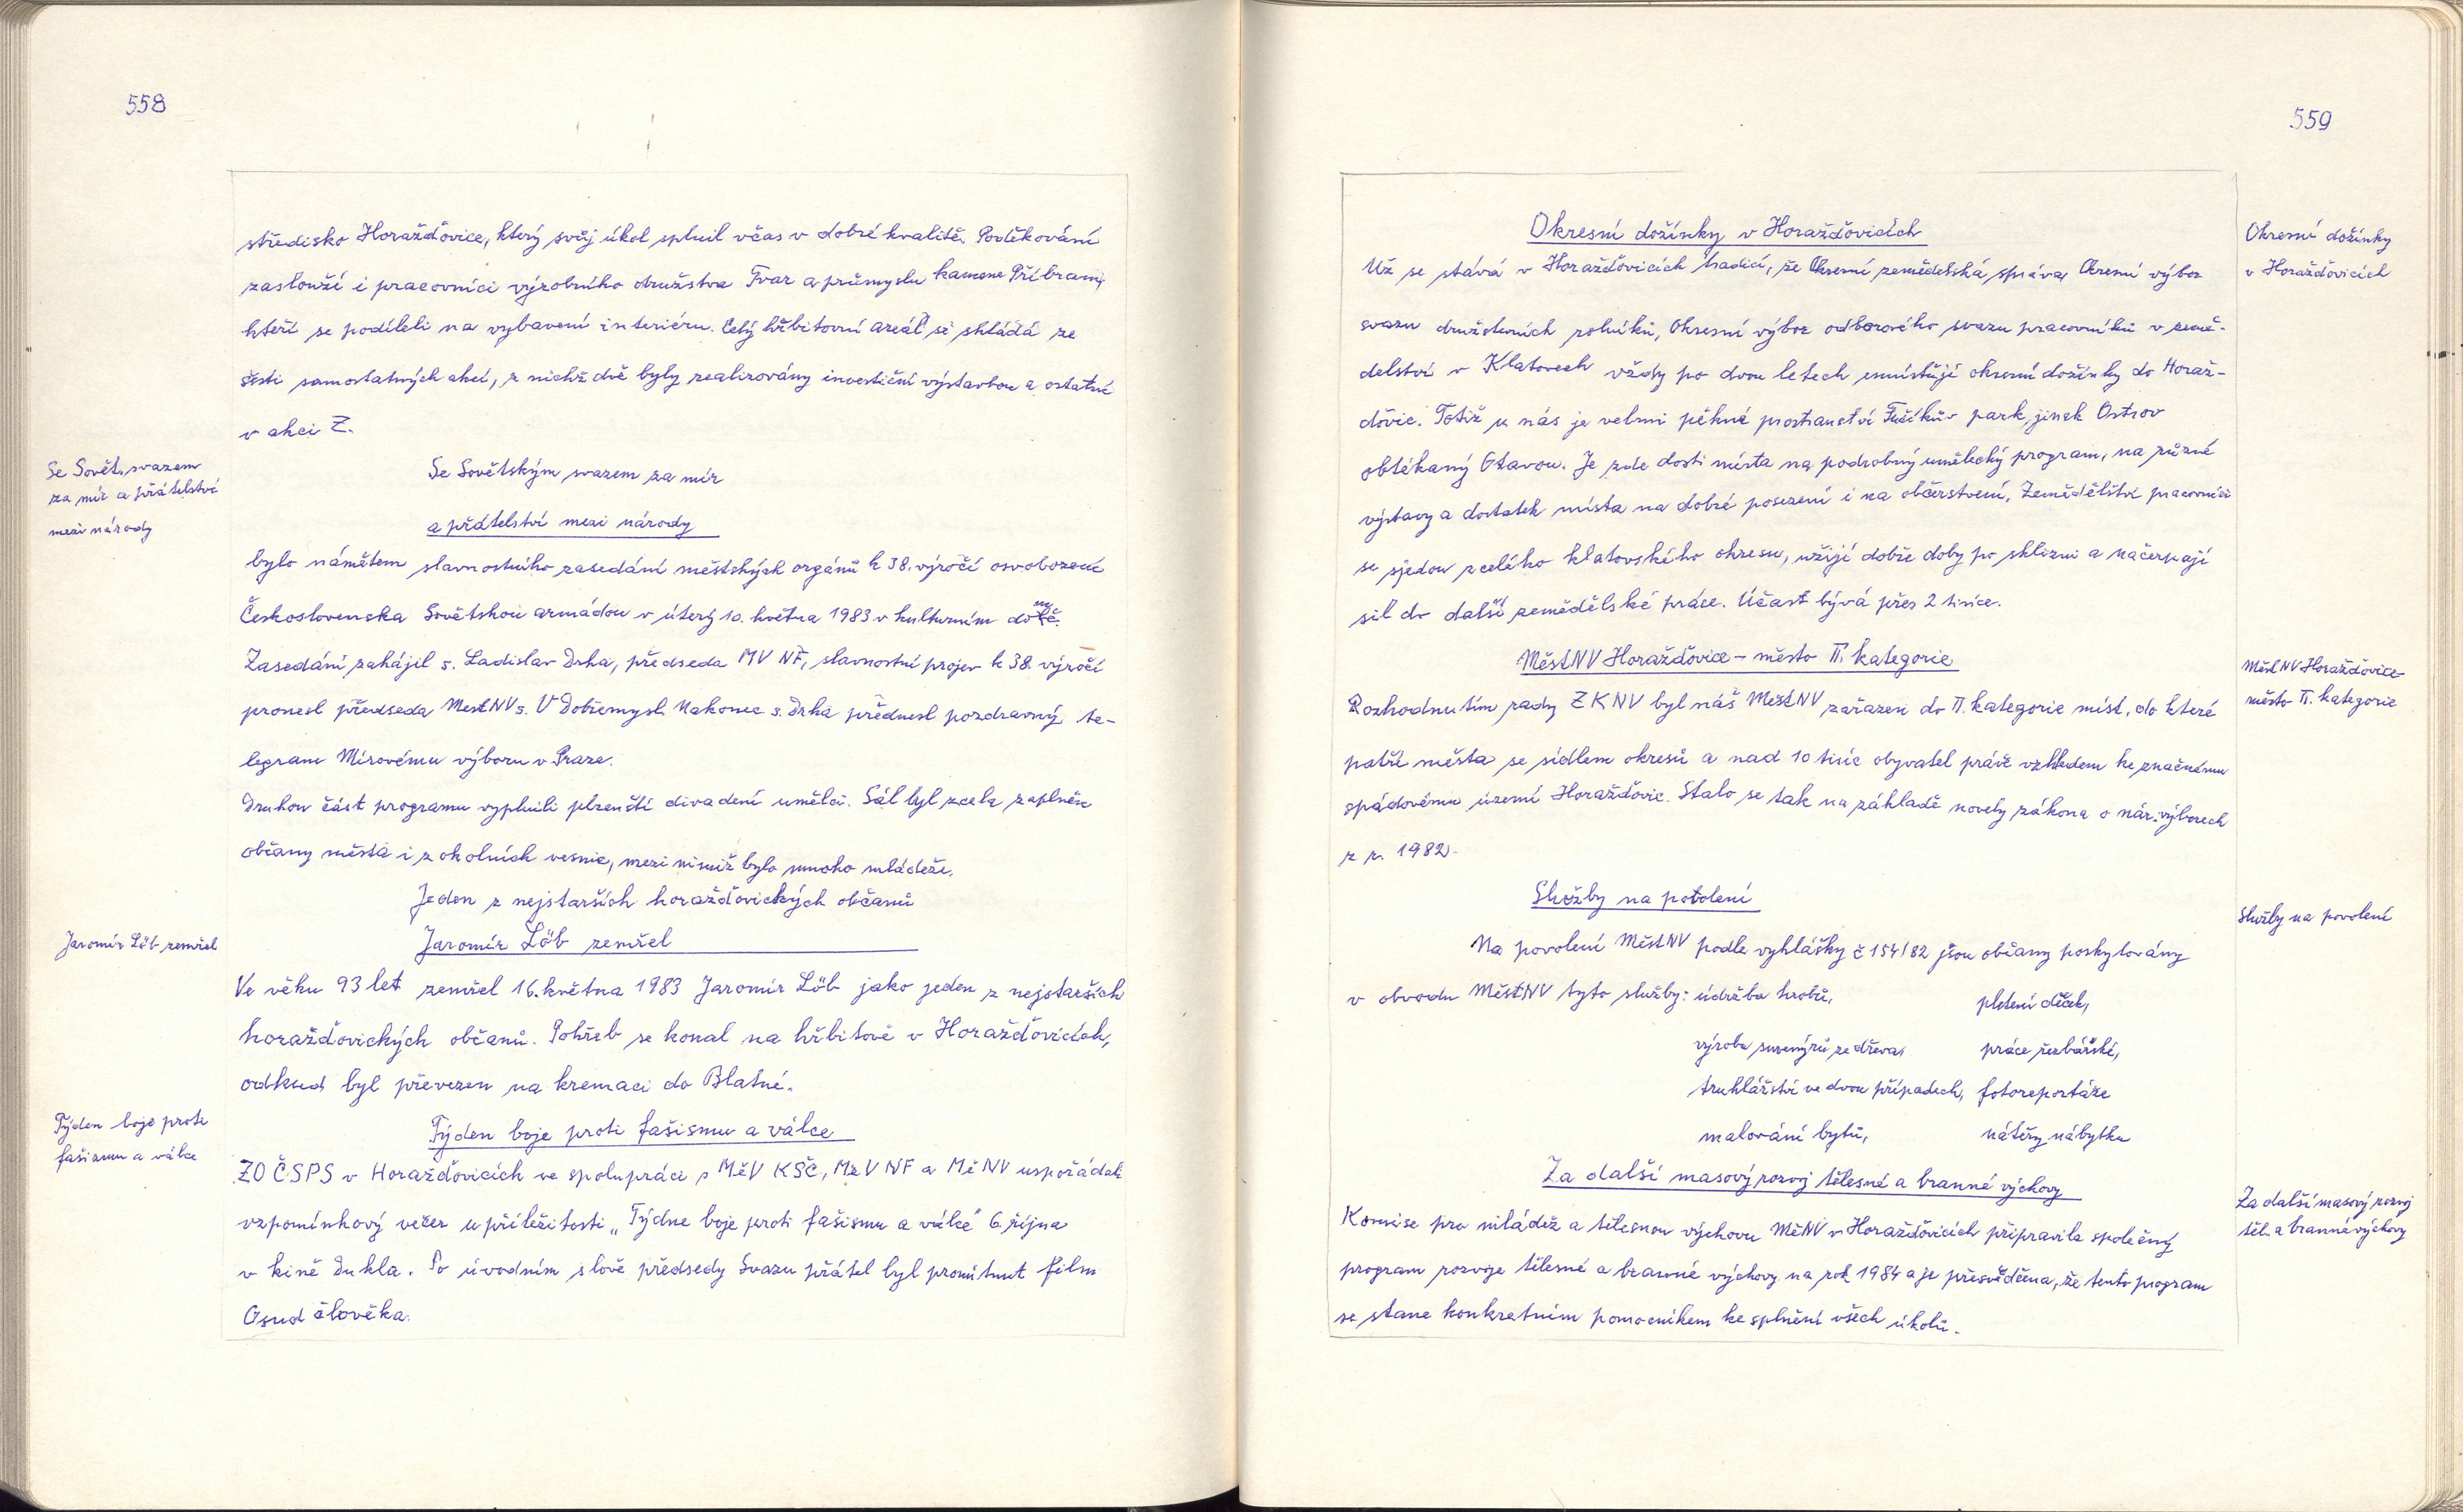 558
středisko Horažďovice, který svůj úkol splnil včas v dobré kvalitě. Poděkování
zaslouží i pracovníci výrobního družstva Tvar a průmyslu kamene Příbram,
kteří se podíleli na vybavení interiéru. Celý hřbitovní areál se skládá ze
šesti samostatných akcí, z nichž dvě byly realizovány investiční výstavbou a ostatní
v akci Z.
Se Sovět. svazem
za mír a přátelství
mezi národy
Se Sovětským svazem za mír
a přátelství mezi národy
bylo námětem slavnostního zasedání městských orgánů k 38. výročí osvobození
Československa Sovětskou armádou v úterý 10. května 1983 v kulturním domě.
Zasedání zahájil s. Ladislav Drha, předseda MV NF, slavnostní projev k 38. výročí
pronesl předseda MěstNV s. V Dobřemysl. Nakonec s. Drha přednesl pozdravný te-
legram Mírovému výboru v Praze.
Druhou část programu vyplnili plzenští divadení umělci. Sál byl zcela zaplněn
občany města i z okolních vesnic, mezi nimiž bylo mnoho mládeže.
Jeden z nejstarších horažďovických občanů
Jaromír Löb zemřel
Jaromír Löb zemřel
Ve věku 93 let zemřel 16. května 1983 Jaromír Löb jako jeden z nejstarších
horažďovických občanů. Pohřeb se konal na hřbitově v Horažďovicích,
odkud byl převezen na kremaci do Blatné.
Týden boje proti
fašizmu a válce
Týden boje proti fašismu a válce
ZO ČSPS v Horažďovicích ve spolupráci s MěV KSČ, MěV NF a MěNV uspořádali
vzpomínkový večer u příležitosti „Týdne boje proti fašismu a válce" 6. října
v kině Dukla. Po úvodním slově předsedy Svazu přátel byl promítnut film
Osud člověka.
559
Okresní dožínky v Horažďovicích
Okresní dožínky
v Horažďovicích
Už se stává v Horažďovicích tradicí, že Okresní zemědělská správa, Okresní výbor
svazu družstevních rolníků, Okresní výbor odborového svazu pracovníků v země-
dělství v Klatovech vždy po dvou letech umístňují okresní dožínky do Horaž-
ďovic. Totiž u nás je velmi pěkné prostranství Fučíkův park, jinak Ostrov
obtékaný Otavou. Je zde dosti místa na podrobný umělecký program, na různé
výstavy a dostatek místa na dobré posezení i na občerstvení. Zemědělští pracovníci
se sjedou z celého klatovského okresu, užijí dobře doby po sklizni a načerpají
sil do další zemědělské práce. Účast bývá přes 2 tisíce.
MěstNV Horažďovice – město II. kategorie
MěstNV Horažďovice-
město II. kategorie
Rozhodnutím rady ZKNV byl náš MěstNV zařazen do II. kategorie míst, do které
patří města se sídlem okresů a nad 10 tisíc obyvatel právě vzhledem ke značnému
spádovému území Horažďovic. Stalo se tak na základě novely zákona o nár. výborech
z r. 1982.
Služby na povolení
Služby na povolení
Na povolení MěstNV podle vyhlášky č 154/82 jsou občany poskytovány
v obvodu MěstNV tyto služby: údržba hrobů, pletení deček,
výroba suvenýrů ze dřeva, práce řezbářské,
truhlářství ve dvou případech, fotoreportáže
malování bytů, nátěry nábytku
Za další masový rozvoj tělesné a branné výchovy
Za další masový rozvoj
těl. a branné výchovy
Komise pro mládež a tělesnou výchovu MěNV v Horažďovicích připravila společný
program rozvoje tělesné a branné výchovy na rok 1984 a je přesvědčena, že tento program
se stane konkretním pomocníkem ke splnění všech úkolů.